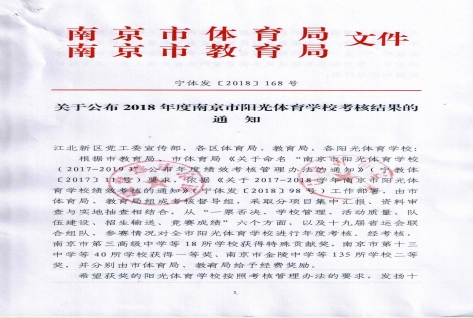 南京市体育局
南京市教育局
文件
宁体发〔2018〕168号
关于公布2018年度南京市阳光体育学校考核结果的
通 知
江北新区党工委宣传部、各区体育局、教育局、各阳光体育学校:
根据市教育局、市体育局《关于命名“南京市阳光体育学校
（2017-2019）”公布年度绩效考核管理办法的通知》（宁教体
〔2017〕11号）要求，依据《关于2017-2018学年南京市阳光体
育学校绩效考核的通知》（宁体发〔2018〕98号）工作部署，由市
体育局、教育局组成考核督导组，采取分项目集中汇报、资料审
查与实地抽查相结合，从“一票否决、学校管理、活动质量、队
伍建设、招生输送、竞赛成绩”六个方面，以及十九届省运会联
合组队、参赛情况对全市阳光体育学校进行年度考核。经考核，
南京市第三高级中学等18所学校获得特殊贡献奖，南京市第十三
中学等40所学校获得一等奖，南京市金陵中学等135所学校二等
奖，并分别由市体育局、教育局给予经费奖励。
希望获奖的阳光体育学校按照考核管理办法的要求，发扬十